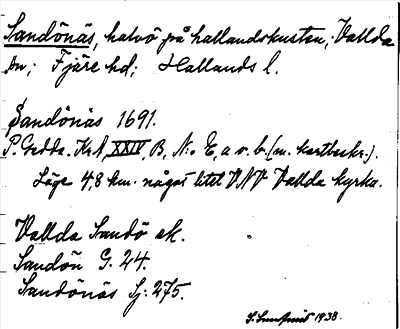 Sandönäs, halvö på hallandskusten; Vallda
sn; Fjäre hd; Hallands l.
Sandönäs 1691.
P. Gedda. KrA, XXIV, B, N:o E, a o. b. (m. kartbeskr.).
Läge 4,8 km. något litet VNV Vallda kyrka.
Vallda Sandö ek.
Sandön G. 24.
Sandönäs Sj. 275.
1938.